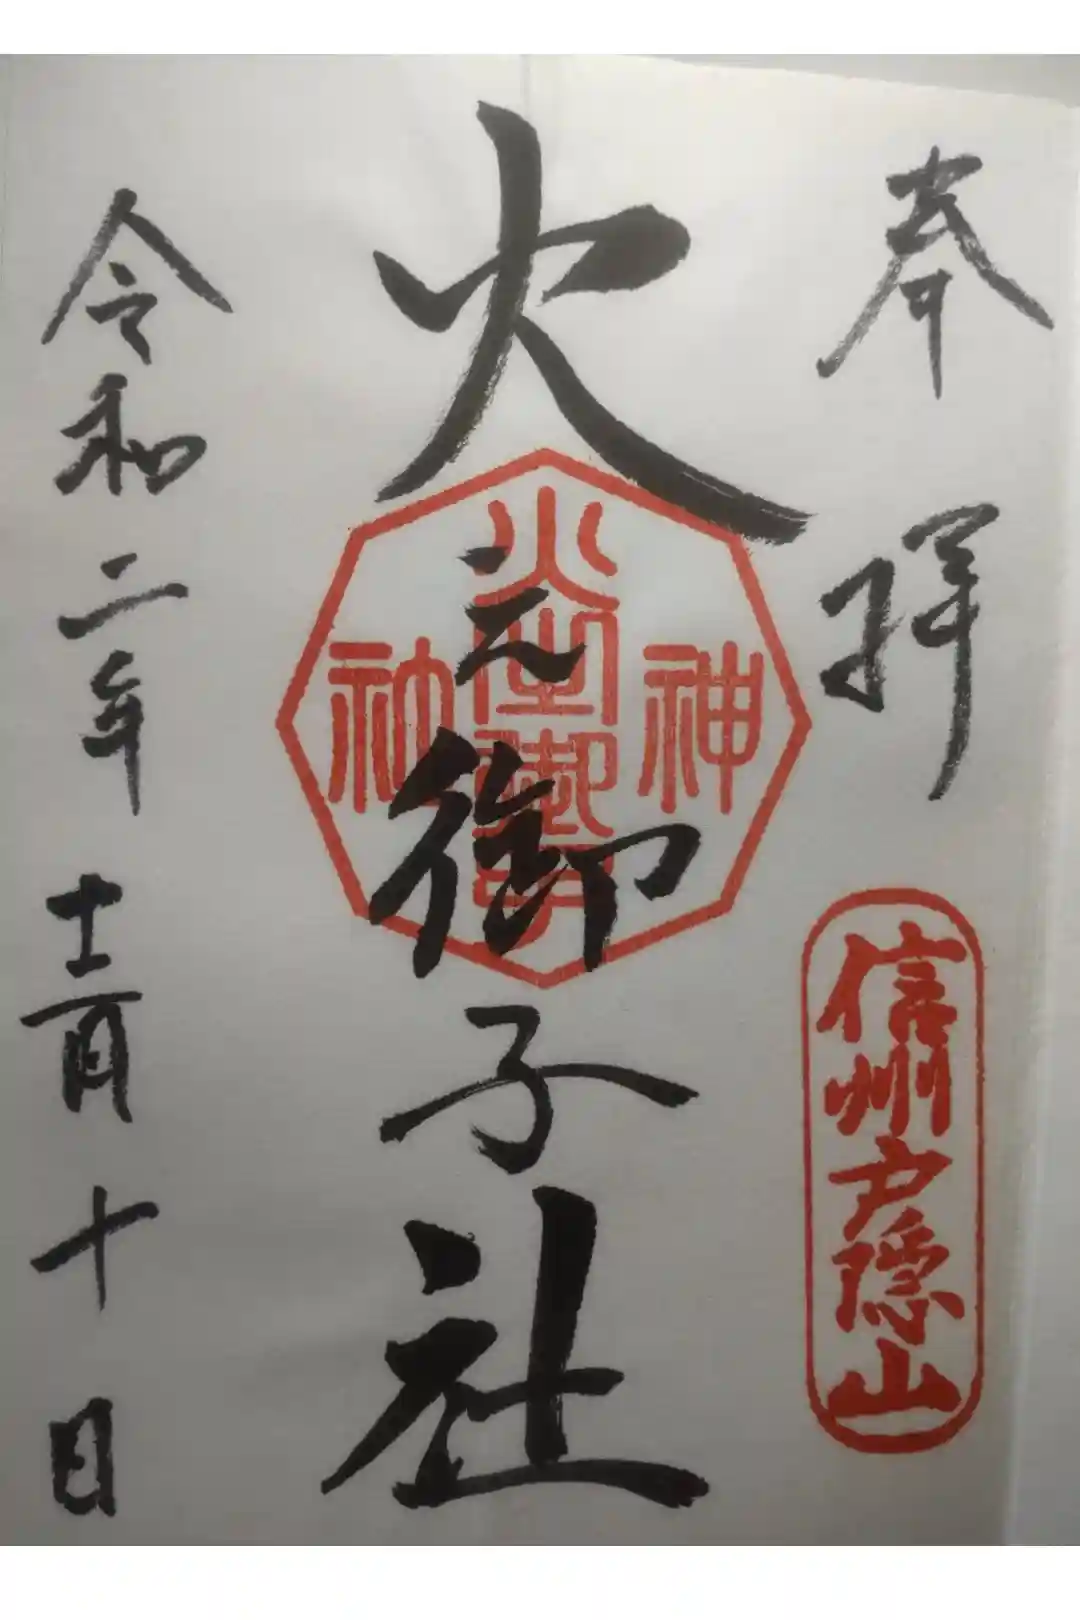 奉拝
信州戸隠山
火之御子社
神
社
令和二年十二月十日